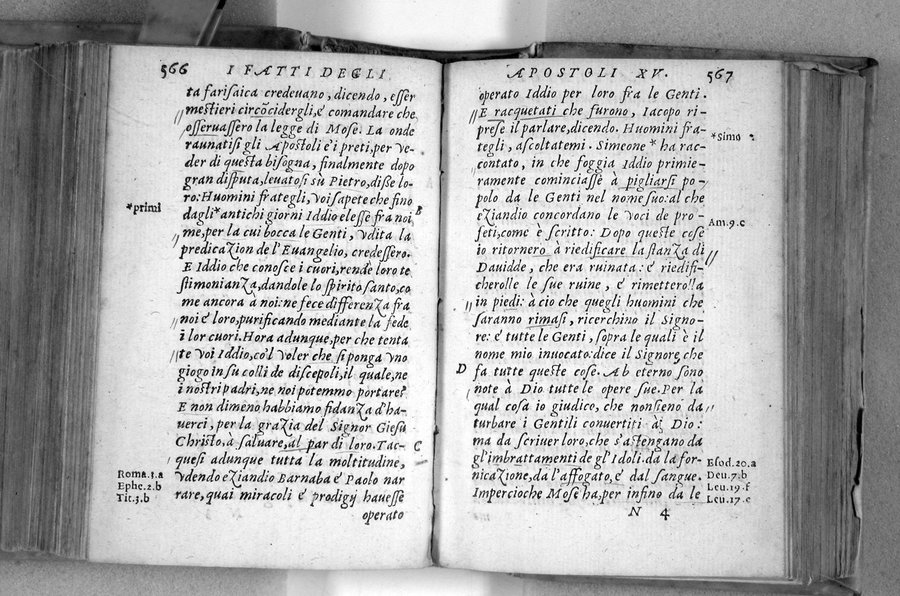 566
I FATTI DEGLI
ta farisaica credeuano, dicendo, esser
mestieri circōcidergli, e' comandare che
osseruassero la legge di Mose. La onde
raunatisi gli Apostoli e' i preti, per ve-
der di questa bisogna, finalmente dopo
gran disputa, leuatosi sù Pietro, disse lo-
ro: Huomini frategli, voi sapete che fino
*primi
dagli* antichi giorni Iddio elesse fra noi
B
me, per la cui bocca le Genti, vdita la
predicazion dell'Euangelio, credessero.
E Iddio che conosce i cuori, rende loro te
stimonianza, dandole lo spirito santo, co
me ancora a noi: ne fece differenza fra
noi e' loro, purificando mediante la fede
i lor cuori. Hora adunque, per che tenta
te voi Iddio, co'l voler che si ponga vno
giogo in su colli de discepoli, il quale, ne
i nostri padri, ne noi potemmo portare?
E non dimeno habbiamo fidanza d'ha-
uerci, per la grazia del Signor Giesù
Christo, à saluare, al par di loro. Tac-
C
quesi adunque tutta la moltitudine,
Roma.1.a
vdendo eziandio Barnaba e' Paolo nar
Ephe.2.b
rare, quai miracoli e' prodigij hauesse
Tit.3.b
operato
APOSTOLI XV.
567
operato Iddio per loro fra le Genti.
E racquetati che furono, Iacopo ri-
prese il parlare, dicendo. Huomini fra-
*Simo
tegli, ascoltatemi. Simeone * ha rac-
contato, in che foggia Iddio primie-
ramente cominciasse à pigliarsi po-
polo da le Genti nel nome suo: al che
eziandio concordano le voci de pro-
Am.9.c
feti, come è scritto: Dopo queste cose
io ritornerò à riedificare la stanza di
Dauidde, che era ruinata: e' riedifi-
cherolle le sue ruine, e' rimetterolla
in piedi: à cio che quegli huomini che
saranno rimasi, ricerchino il Signo-
re: e' tutte le Genti, sopra le quali è il
nome mio inuocato: dice il Signore, che
D
fa tutte queste cose. Ab eterno sono
note à Dio tutte le opere sue. Per la
qual cosa io giudico, che non sieno da
turbare i Gentili conuertiti à Dio:
ma da scriuer loro, che s'astengano da
gl'imbrattamenti de gl'Idoli, da la for-
Esod.20.a
nicazione, da l'affogato, e' dal sangue.
Deu.7.b
Leu.19.f
Impercioche Mose ha, per infino da le
Leu.17.c
N 4